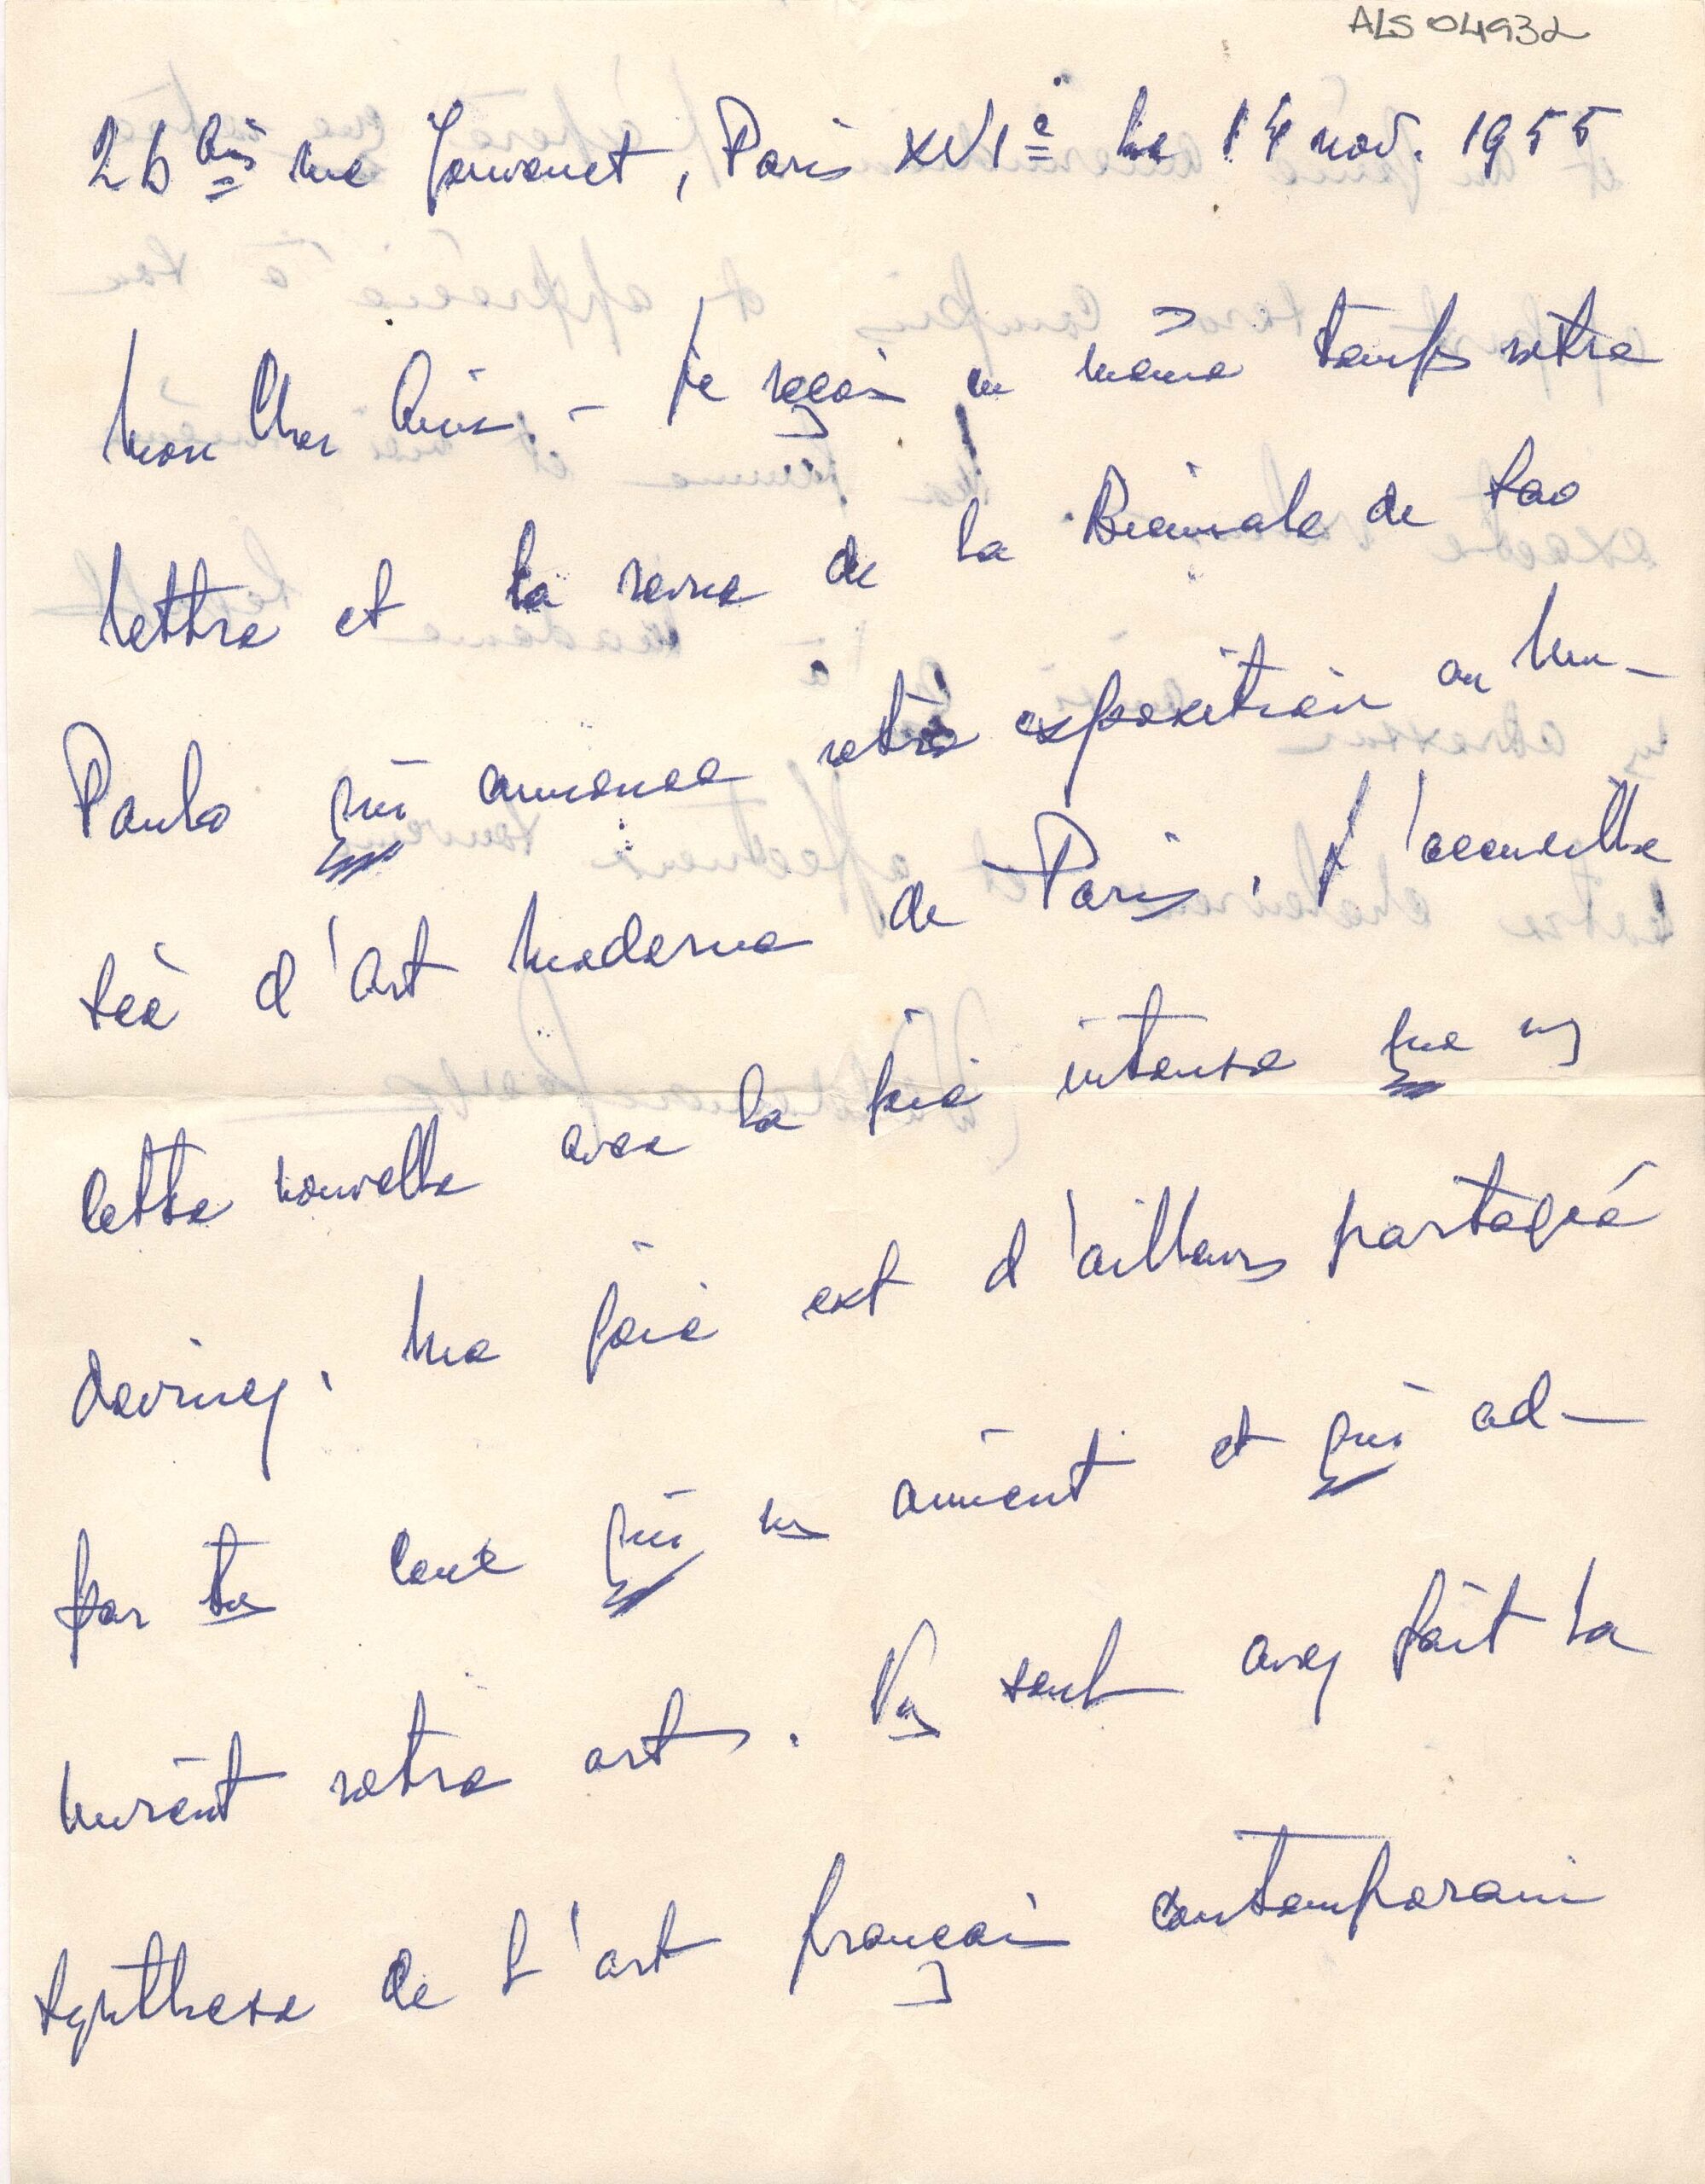 ALS 04932
26 bis rue Jouvenet, Paris XVIe le 14 nov. 1955
Mon Cher Ami. - Je reçois en même temps votre
lettre et la revue de la Biennale de Sao
Paulo qui annonce votre exposition au Mu-
sée d'Art Moderne de Paris. J'accueille
cette nouvelle avec la joie intense que vs
devinez. Ma joie est d'ailleurs partagée
par ts ceux qui vs aiment et qui ad-
mirent votre art. Vs seul avez fait la
synthese de l'art français contemporain